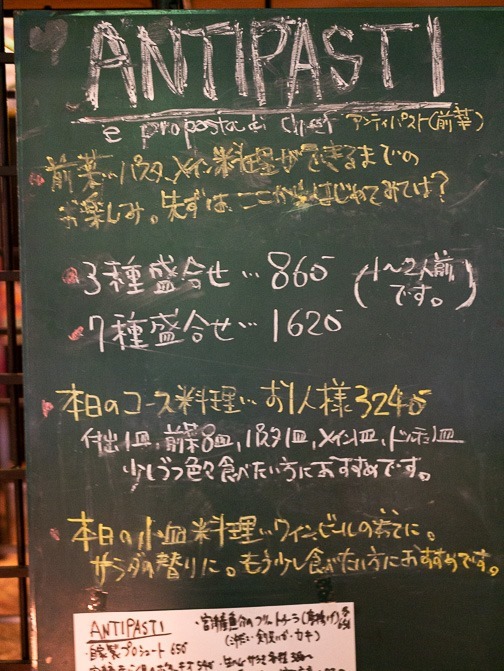 ANTIPASTI
e proposta di chef アンティパスト(前菜)
前菜… パスタ、メイン料理ができるまでの
お楽しみ。先ずは、ここからはじめてみては?
3種盛合せ… 860 (1〜2人前
です。)
7種盛合せ… 1620
本日のコース料理… お1人様 3240
付出1皿, 前菜8皿, パスタ1皿, メイン1皿, ドルチェ1皿
少しづつ色々食べたい方におすすめです。
本日の小皿料理… ワイン、ビールのあてに。
サラダの替りに。もう少し食べたい方におすすめです。
ANTIPASTI
・自家製プロシュート 650